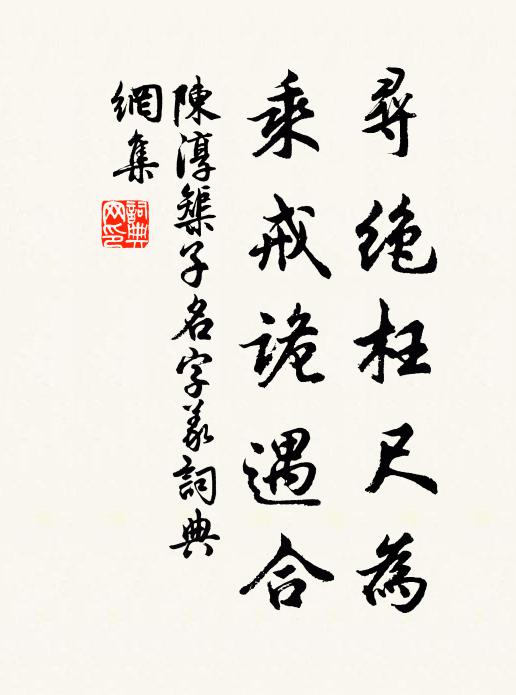 尋絕枉尺為
乘戒詭遇合
陳淳榘子名字義詞典
網集
詞典
网印